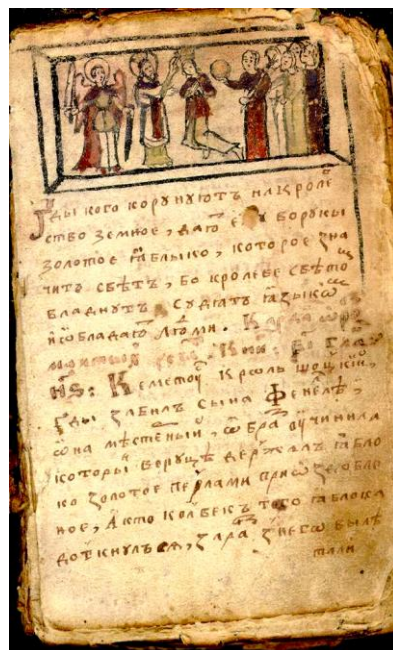 Гды кого корунуютъ на кролє
ство земноє, даю є у в руки
золотоє ꙗблыко, котороє зна
читъ свѣтъ, бо кролеве свѣто
владнутъ Судꙗтъ ꙗзыкѡ
и ѡбладаю людми.
Кни: гла
Кеметоу Кроль шоцкїй,
гды забилъ сына Фенелѣ,
ѡна ѡбра вучинила
которы вруцѣ держалъ ꙗбло
ко золотоє перлами приѡздобле
ноє, А кто колвекъ того ꙗблока
доткнулъсѧ, зара з него былѣ
тали